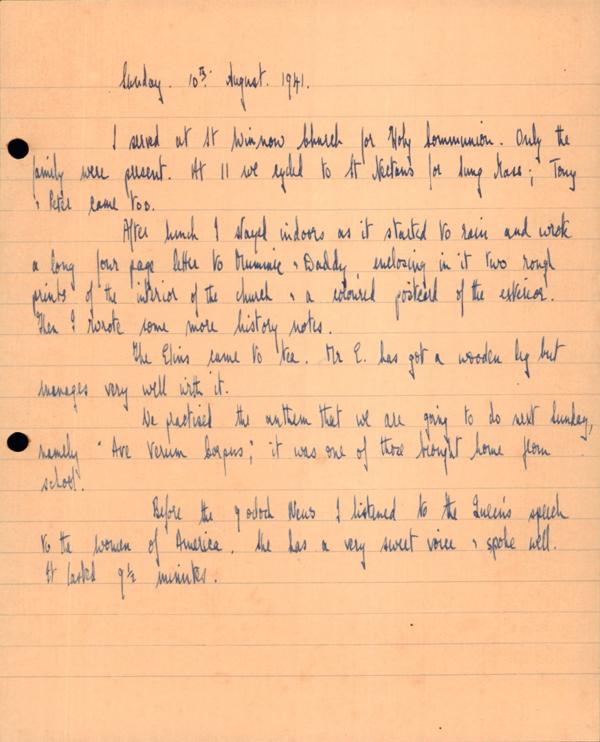 Sunday. 10th. August. 1941.
I served at St Winnow Church for Holy Communion. Only the
family were present. At 11 we cycled to St Nectans for Sung Mass; Tony
& Peter came too.
After lunch I stayed indoors as it started to rain and wrote
a long four page letter to Mummie & Daddy, enclosing in it two rough
prints of the interior of the church & a coloured postcard of the exterior.
Then I wrote some more history notes.
The came to tea. Mr E. has got a wooden leg but
manages very well with it.
We practised the anthem that we are going to do next Sunday,
namely "Ave Verum Corpus;" it was one of those brought home from
school.
Before the 9 oclock News I listened to the Queen's speech
to the women of America. She has a very sweet voice & spoke well.
It lasted 9½ minutes.